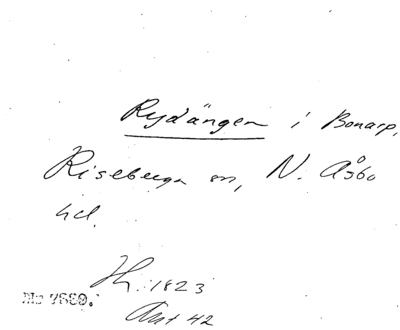 Rydängen i Bonarp,
Riseberga sn, N. Åsbo
hd.
H. 1823
No 7680.
Ant 42